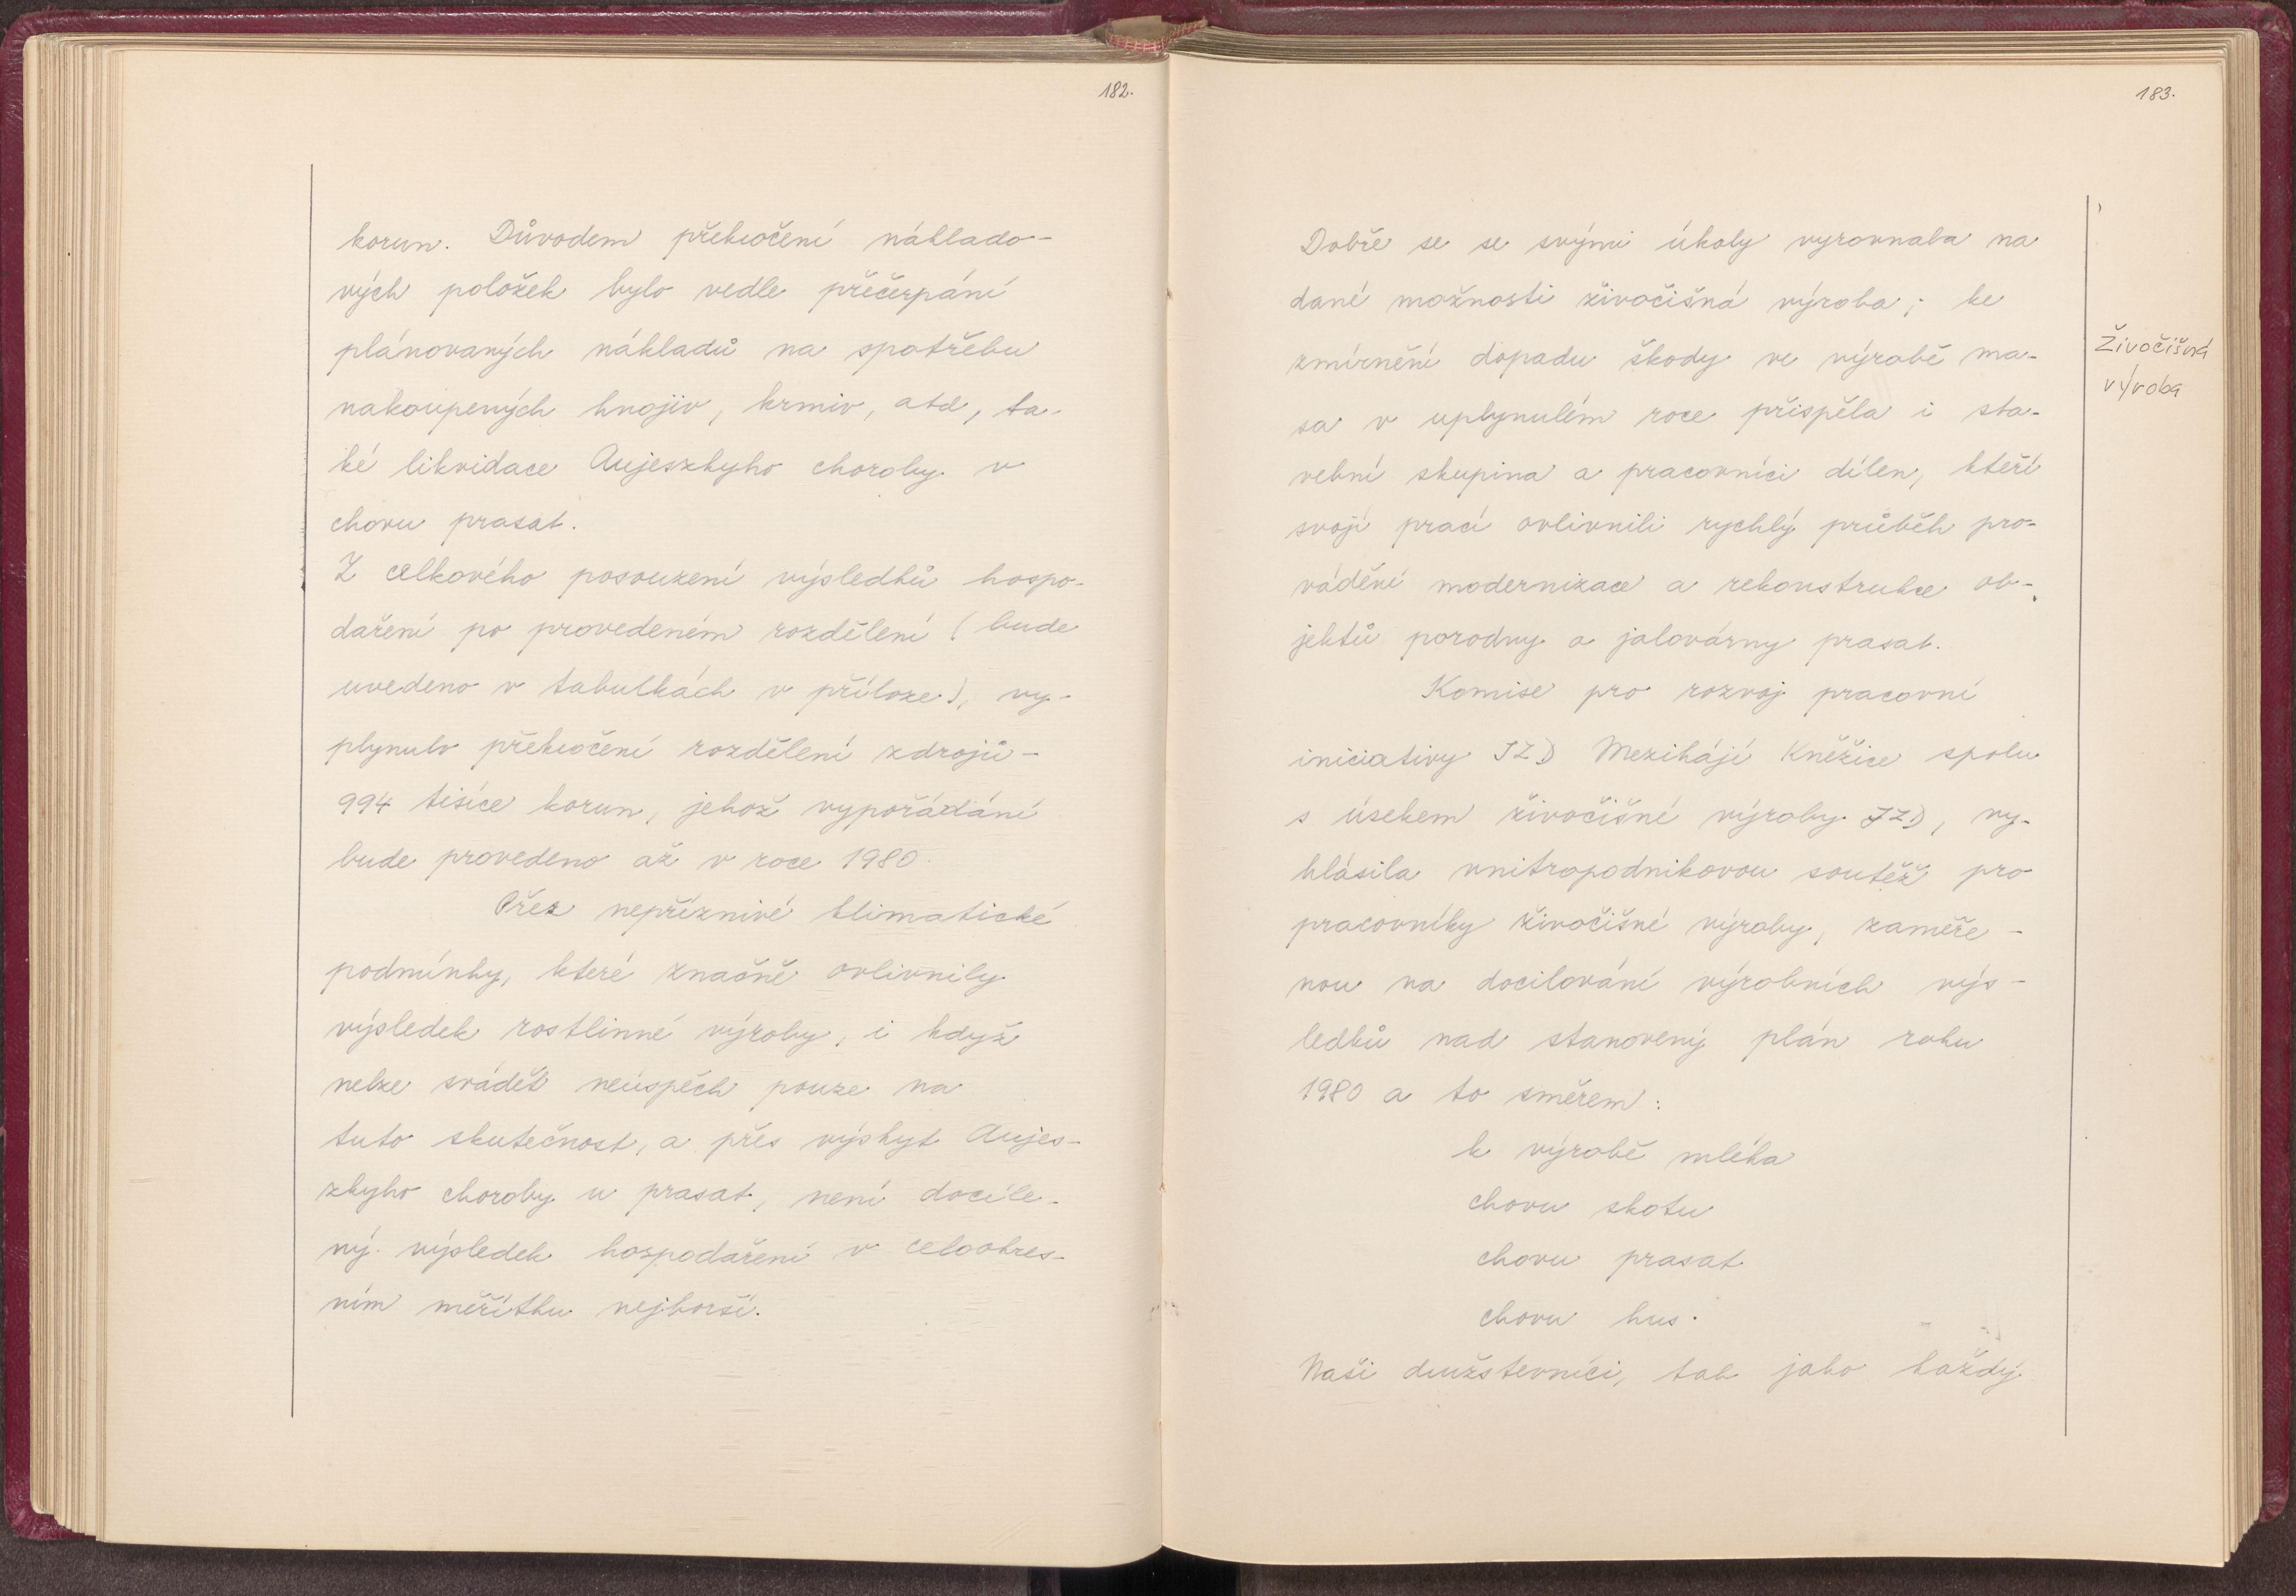 182.
korun. Důvodem překročení náklado-
vých položek bylo vedle přečerpání
plánovaných nákladů na spotřebu
nakoupených hnojiv, krmiv, atd, ta-
ké likvidace Aujeszkyho choroby v
chovu prasat.
Z celkového posouzení výsledků hospo-
daření po provedeném rozdělení (bude
uvedeno v tabulkách v příloze), vy-
plynulo překročení rozdělení zdrojů -
994 tisíce korun, jehož vypořádání
bude provedeno až v roce 1980.
Přez nepříznivé klimatické
podmínky, které značně ovlivnily
výsledek rostlinné výroby, i když
nelze svádět neúspěch pouze na
tuto skutečnost, a přes výskyt Aujes-
zkyho choroby u prasat, není docíle-
ný výsledek hospodaření v celookres-
ním měřítku nejhorší.
183.
Dobře se se svými úkoly vyrovnala na
dané možnosti živočišná výroba; ke
zmírnění dopadu škody ve výrobě ma-
sa v uplynulém roce přispěla i sta-
vební skupina a pracovníci dílen, kteří
svojí prací ovlivnili rychlý průběh pro-
vádění modernizace a rekonstrukce ob-
jektů porodny a jalovárny prasat.
Komise pro rozvoj pracovní
iniciativy JZD Mezihájí Kněžice spolu
s úsekem živočišné výroby JZD, vy-
hlásila vnitropodnikovou soutěž pro
pracovníky živočišné výroby, zaměře-
nou na docilování výrobních výs-
ledků nad stanovený plán roku
1980 a to směrem:
k výrobě mléka
chovu skotu
chovu prasat
chovu hus.
Naši družstevníci, tak jako každý
Živočišná
výroba